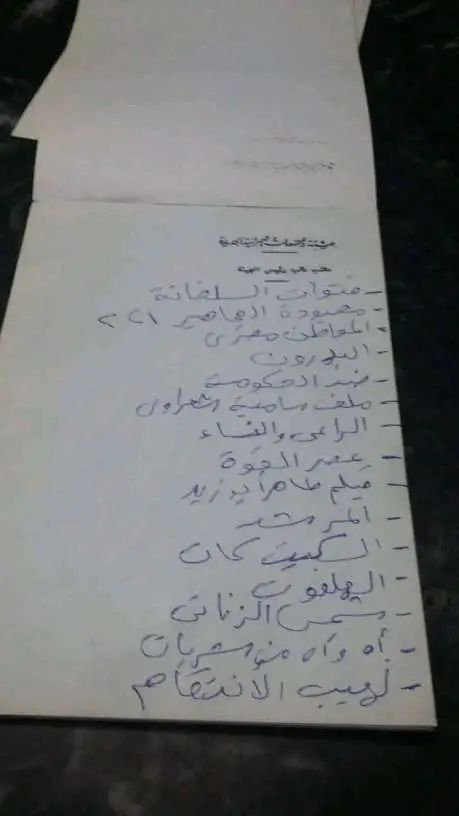 - فتوات السلخانة
- معبودة الجماهير ٢٠٢١
- المواطن مصرى
- البدرون
- ضد الحكومة
- ملف سامية شعراوى
- الراعى والنساء
- عصر القوة
- فيلم طاهر أبو زيد
- المرشد
- الكيت كات
- الهلفوت
- شمس الزناتى
- أه وأه من شربات
- لهيب الانتقام